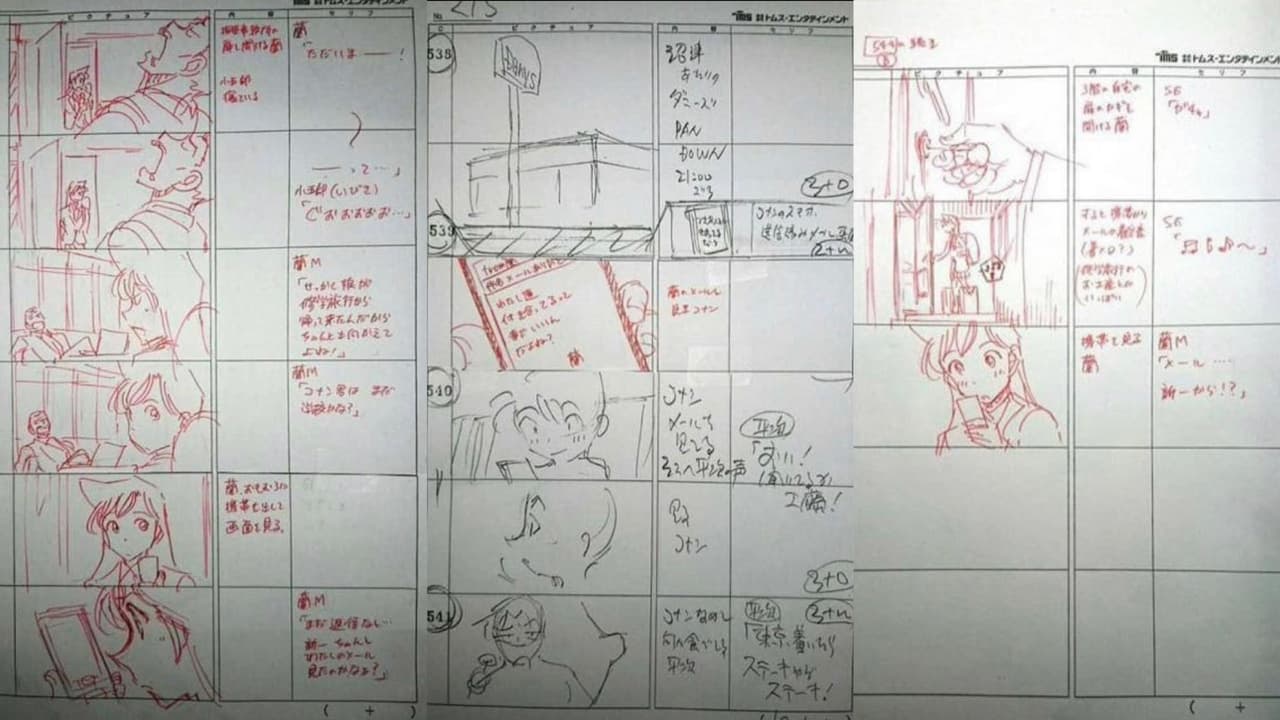 株式会社トムス・エンタテインメント
ピクチュア
内容
セリフ
扉を開ける蘭
小五郎
寝ている
蘭
「ただいま——!
——って…」
小五郎(いびき)
「ぐおおおおお…」
蘭M
「せっかく娘が
修学旅行から
帰って来たんだから
ちゃんと出迎えて
よね!」
蘭M
「コナン君は まだ
学校かな?」
蘭、おもむろに
携帯を出して
画面を見る。
蘭M
「まだ返信なし…
新一 ちゃんと
わたしのメール
見たのかなぁ?」
( + )
213
No
株式会社トムス・エンタテインメント
C
ピクチュア
セリフ
538
沼津
あたりの
PAN
DOWN
21:00
ごろ
3+0
539
コナンのスマホ
from蘭
わたし達
付き合ってるって
事でいいん
だよね?
蘭
蘭のメールを
見るコナン
540
コナン
メールを
見てる
そこへ平次の声
平次
「おい!
聞いてるか
工藤!
コナン
3+0
541
平次
平次
「東京着いたら
ステーキやで
ステーキ!
株式会社トムス・エンタテインメント
ピクチュア
内容
セリフ
3階の自宅の
扉のカギを
開ける蘭
SE
「ガチャ」
すると携帯から
メールの着信音
(着メロ?)
(修学旅行の
お土産とか
いっぱい)
SE
「♫♪♪〜」
携帯を見る
蘭
蘭M
「メール…
新一から!?」
( +